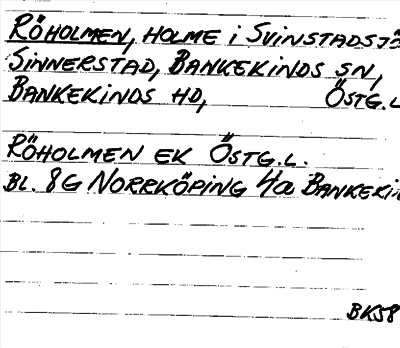 RÖHOLMEN, HOLME i SVINSTADSJÖ
SINNERSTAD, BANKEKINDS SN,
BANKEKINDS HD, ÖSTG.L
RÖHOLMEN EK ÖSTG.L.
BL. 8G NORRKÖPING 4a BANKEKIN
BK58